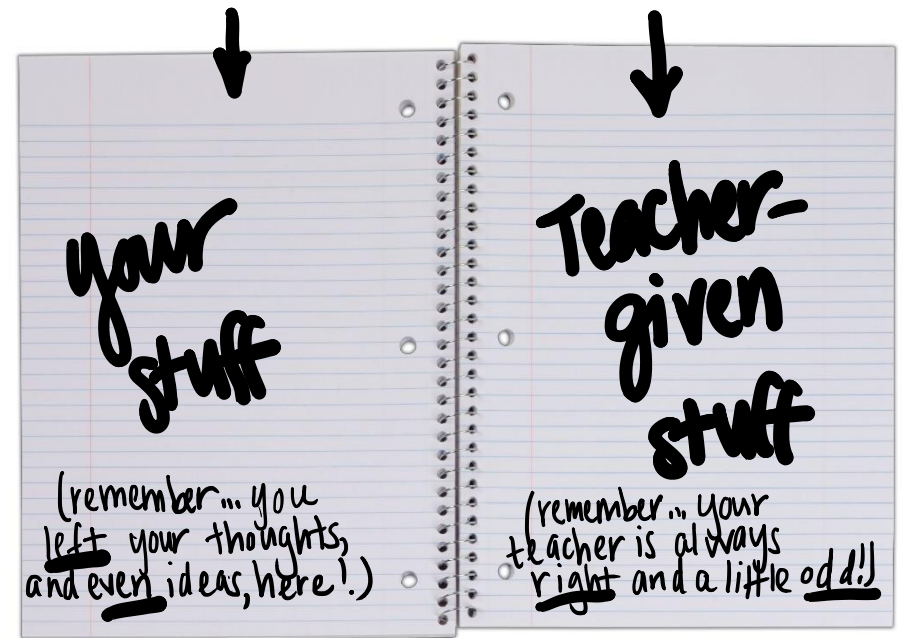 your
stuff
(remember... you
left your thoughts,
and even ideas, here!)
Teacher-
given
stuff
(remember... your
teacher is always
right and a little odd!)